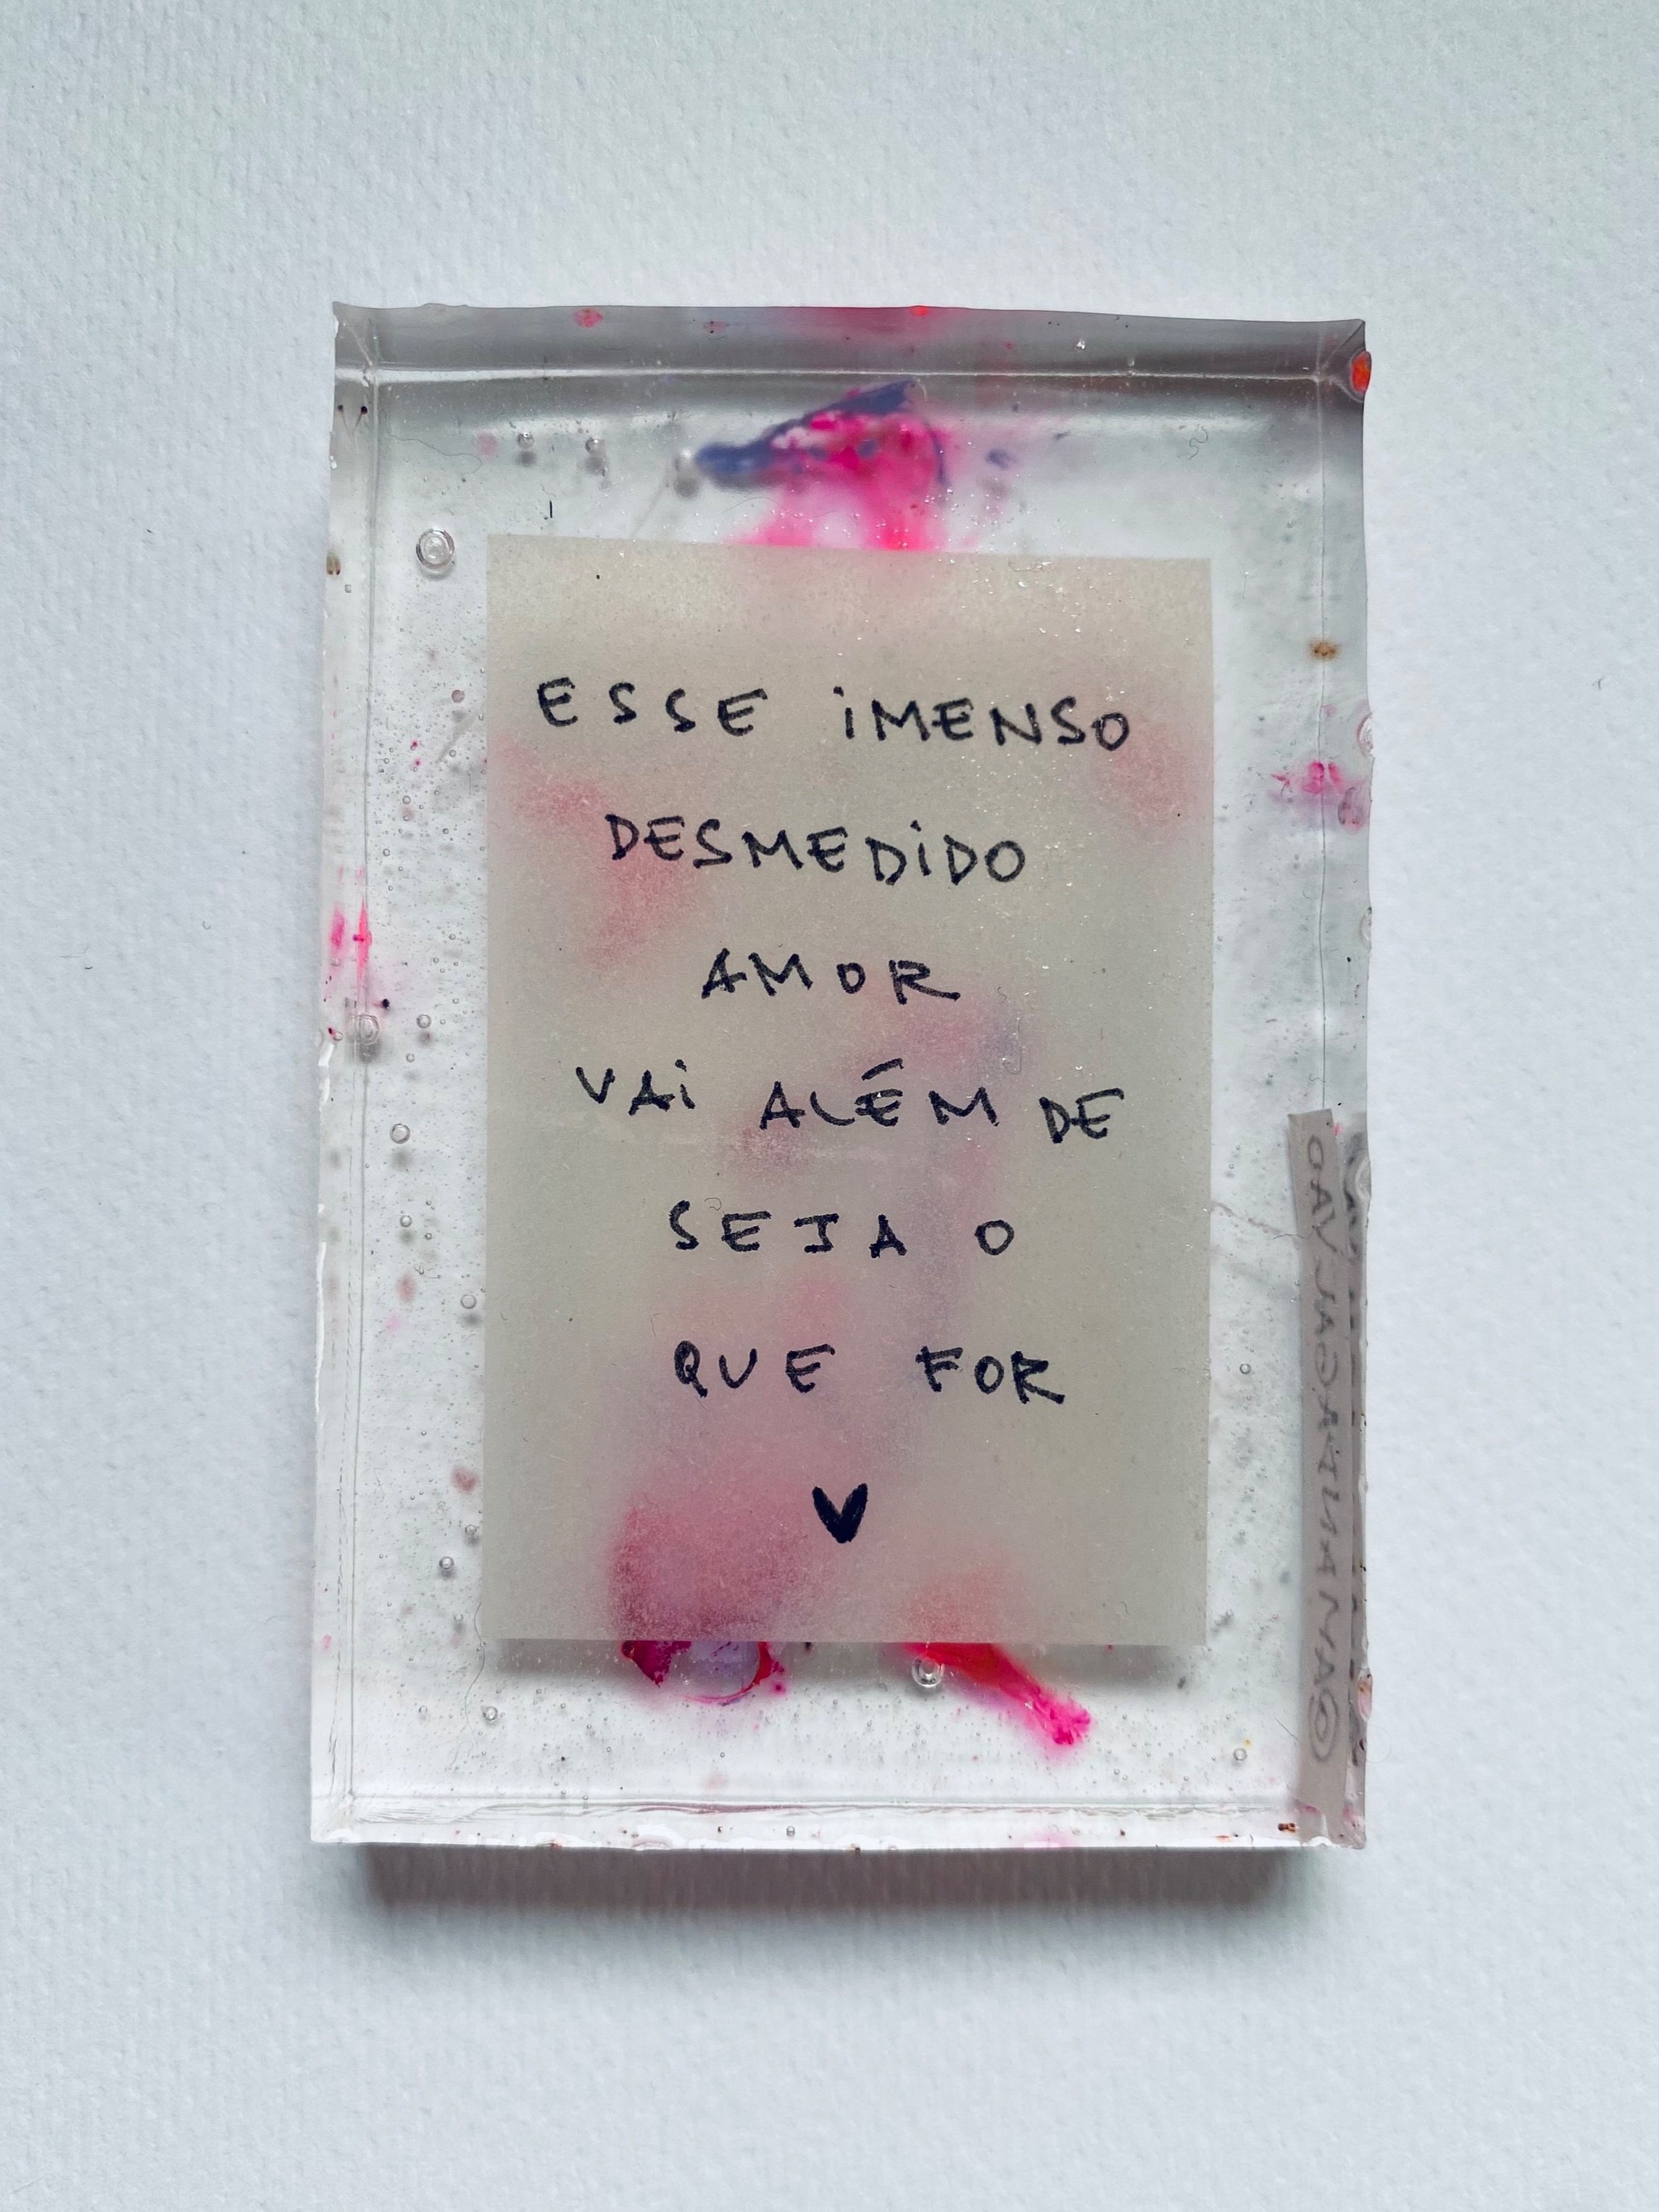 ESSE iMENSO
DESMEDiDO
AMOR
VAi ALÉM DE
SEJA O
QUE FOR
♥